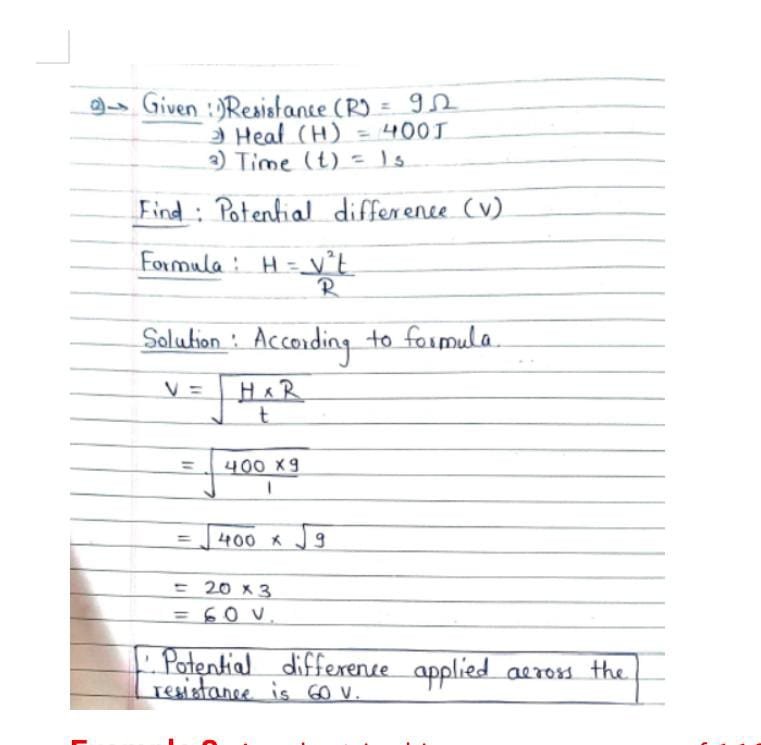 a)→ Given : 1) Resistance (R) = 9Ω
2) Heat (H) = 400J
3) Time (t) = 1s
Find : Potential difference (V)
Formula : H = V²t / R
Solution : According to formula.
V = √(H × R / t)
= √(400 × 9 / 1)
= √400 × √9
= 20 × 3
= 60 V.
∴ Potential difference applied across the
resistance is 60 V.